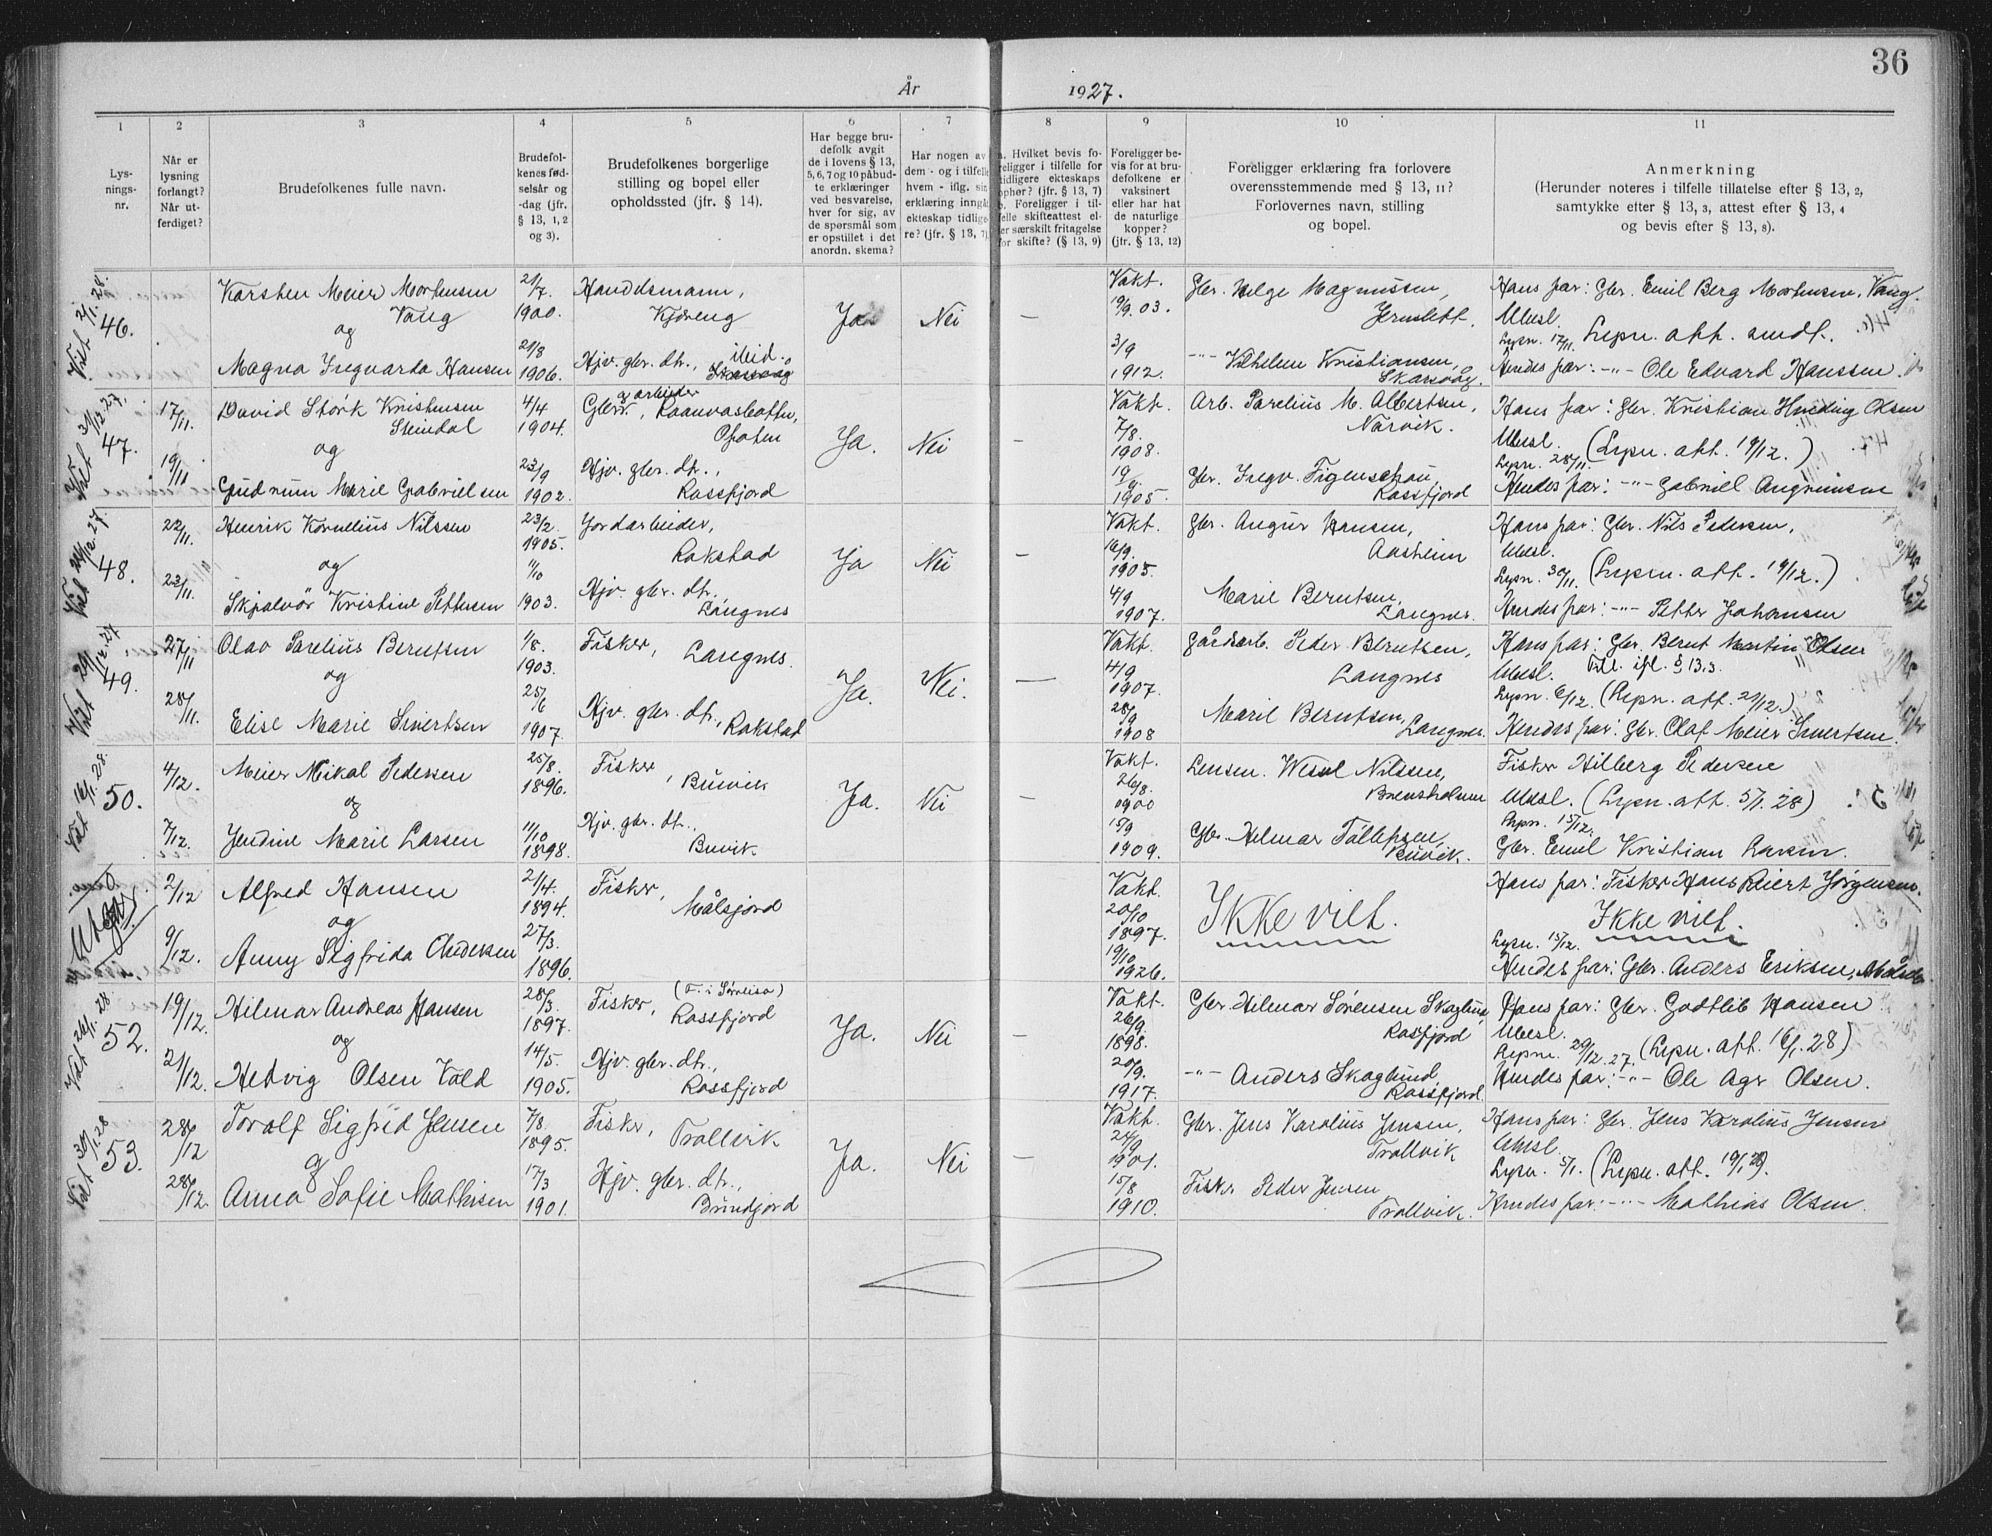 36
År 1927.
1 2 3 4 5 6 7 8 9 10 11
Lysningsnr.
Når er lysning forlangt? Når utferdiget?
Brudefolkenes fulle navn.
Brudefolkenes fødselsår og -dag (jfr. § 13, 1, 2 og 3).
Brudefolkenes borgerlige stilling og bopel eller opholdssted (jfr. § 14).
Har begge brudefolk avgit de i lovens § 13, 5, 6, 7 og 10 påbudte erklæringer ved besvarelse, hver for sig, av de spørsmål som er opstillet i det anordn. skema?
Har nogen av dem - og i tilfelle hvem - iflg. sin erklæring inngåt ekteskap tidligere? (jfr. § 13, 7)
a. Hvilket bevis foreligger i tilfelle for tidligere ekteskaps ophør? (jfr. § 13, 7)
b. Foreligger i tilfelle skifteattest eller særskilt fritagelse for skifte? (§ 13, 9)
Foreligger bevis for at brudefolkene er vaksinert eller har hat de naturlige kopper? (jfr. § 13, 12)
Foreligger erklæring fra forlovere overensstemmende med § 13, 11? Forlovernes navn, stilling og bopel.
Anmerkning
(Herunder noteres i tilfelle tillatelse efter § 13, 2, samtykke efter § 13, 3, attest efter § 13, 4 og bevis efter § 13, 8).
Viet 2/1. 28.
46.
Karsten Meier Mortensen Vang
og
Magna Ingvarda Hansen
21/7. 1900.
21/8 1906.
Handelsmann, Kjøreng
Hjv. gbr. dtr., ibid.
Ja
Nei
—
Vakt.
19/9. 03.
3/9 1912.
Gbr. Helge Magnussen,
-"- Vilhelm Kristiansen, Skarvåg.
Hans far: Gbr. Emil Berg Mortensen, Vang.
Lysn. 17/11. Lepn. att. sendt.
Hendes far: -"- Ole Edvard Hanssen.
Viet 31/12 27.
47.
17/11.
19/11
David Størk Kristensen Steindal
og
Gudrunn Marie Gabrielsen
4/4 1904.
23/9 1902.
& arbeider
Ofoten
Hjv. gbr. dtr., Rossfjord
Ja.
Nei
—
Vakt.
7/8. 1908.
1905.
Arb. Parelius M. Albertsen, Narvik.
Gbr. Ingv. Figenschau, Rossfjord
Hans far: Gbr. Kristian Hveding Olsen
Lysn. 28/11. (Lepn. att. 19/12.)
Hendes far: -"- Gabriel Angrimsen
48.
22/11.
23/11.
Henrik Kornelius Nilssen
og
Skjalvör Kristine Pettersen
23/2. 1905.
11/10 1903.
Jordarbeider, Rakstad
Hjv. gbr. dtr. Langnes
Ja
Nei
—
Vakt.
16/9. 1905.
4/9 1907.
Gbr. Angur Hansen, Aasheim
Marie Berntsen, Langnes.
Hans far: Gbr. Nils Pedersen,
Lysn. 30/11. (Lepn. att. 19/12.)
Hendes far: -"- Petter Johansen
49.
27/11
28/11.
Olav Parelius Berntsen
og
Elise Marie Sivertsen
1/8. 1903.
25/6 1907.
Fisker, Langnes.
Hjv. gbr. dtr., Rakstad
Ja.
Nei.
—
Vakt.
4/9 1907.
28/9 1908
Gårdsarb. Peder Berntsen, Langnes
Marie Berntsen, Langnes.
Hans far: Gbr. Bernt Martin Olsen
Till. ifl. § 13.3.
Lysn. 6/12. (Lepn. att. 21/12.)
Hendes far: Gbr. Olaf Meier Sivertsen.
Viet 16/1. 28.
50.
4/12.
7/12.
Meier Mikal Pedersen
og
Jendine Marie Larsen
25/8. 1896.
11/10 1898.
Fisker, Buvik
Hjv. gbr. dtr., Buvik
Ja.
Nei
—
Vakt.
26/8. 1900
15/9 1909.
Lensm. Wesel Nilssen, Brensholmen
Gbr. Hilmar Tollefsen, Buvik.
Fisker Hilberg Pedersen
(Lepn. att. 5/1. 28)
15/12.
Gbr. Emil Kristian Larsen.
2/12
9/12.
Alfred Hansen
og
Anny Sigfrida Andersen
21/4. 1894.
27/3. 1896.
Fisker, Målsjord
Vakt.
20/10 1897.
19/10 1926.
Ikke viet.
Hans far: Fisker Hans Peiert Jørgensen.
Ikke viet.
Lysn. 15/12.
Hendes far: Gbr. Anders Eriksen,
Viet 26/1. 28
52.
19/12.
21/12.
Hilmar Andreas Hansen
og
Hedvig Olsen Vold
28/3. 1897.
14/5. 1905.
Fisker, Rossfjord
Hjv. gbr. dtr., Rossfjord
Ja.
Nei
—
Vakt.
26/9. 1898.
20/9. 1917.
Gbr. Hilmar Sørensen Skoglund, Rossfjord
-"- Anders Skoglund Rossfjord
Hans far: Gbr. Godtlib Hansen
29/12. 27. (Lepn. att. 16/1. 28)
Hendes far: -"- Ole Agr Olsen.
Viet 30/1. 28
53.
28/12
28/12.
Toralf Sigfrid Jensen
og
Anna Sofie Mathisen
7/8 1895.
17/3 1901.
Fisker, Trollvik
Hjv. gbr. dtr., Brundjord
Ja.
Nei
—
Vakt.
24/9 1901.
15/8 1910.
Gbr. Jens Karolius Jensen, Trollvik
Fisker Peder Jensen Trollvik.
Hans far: Gbr. Jens Karolius Jensen
Lysn. 5/1. (Lepn. att. 19/1 28).
Hendes far: -"- Mathias Olsen.